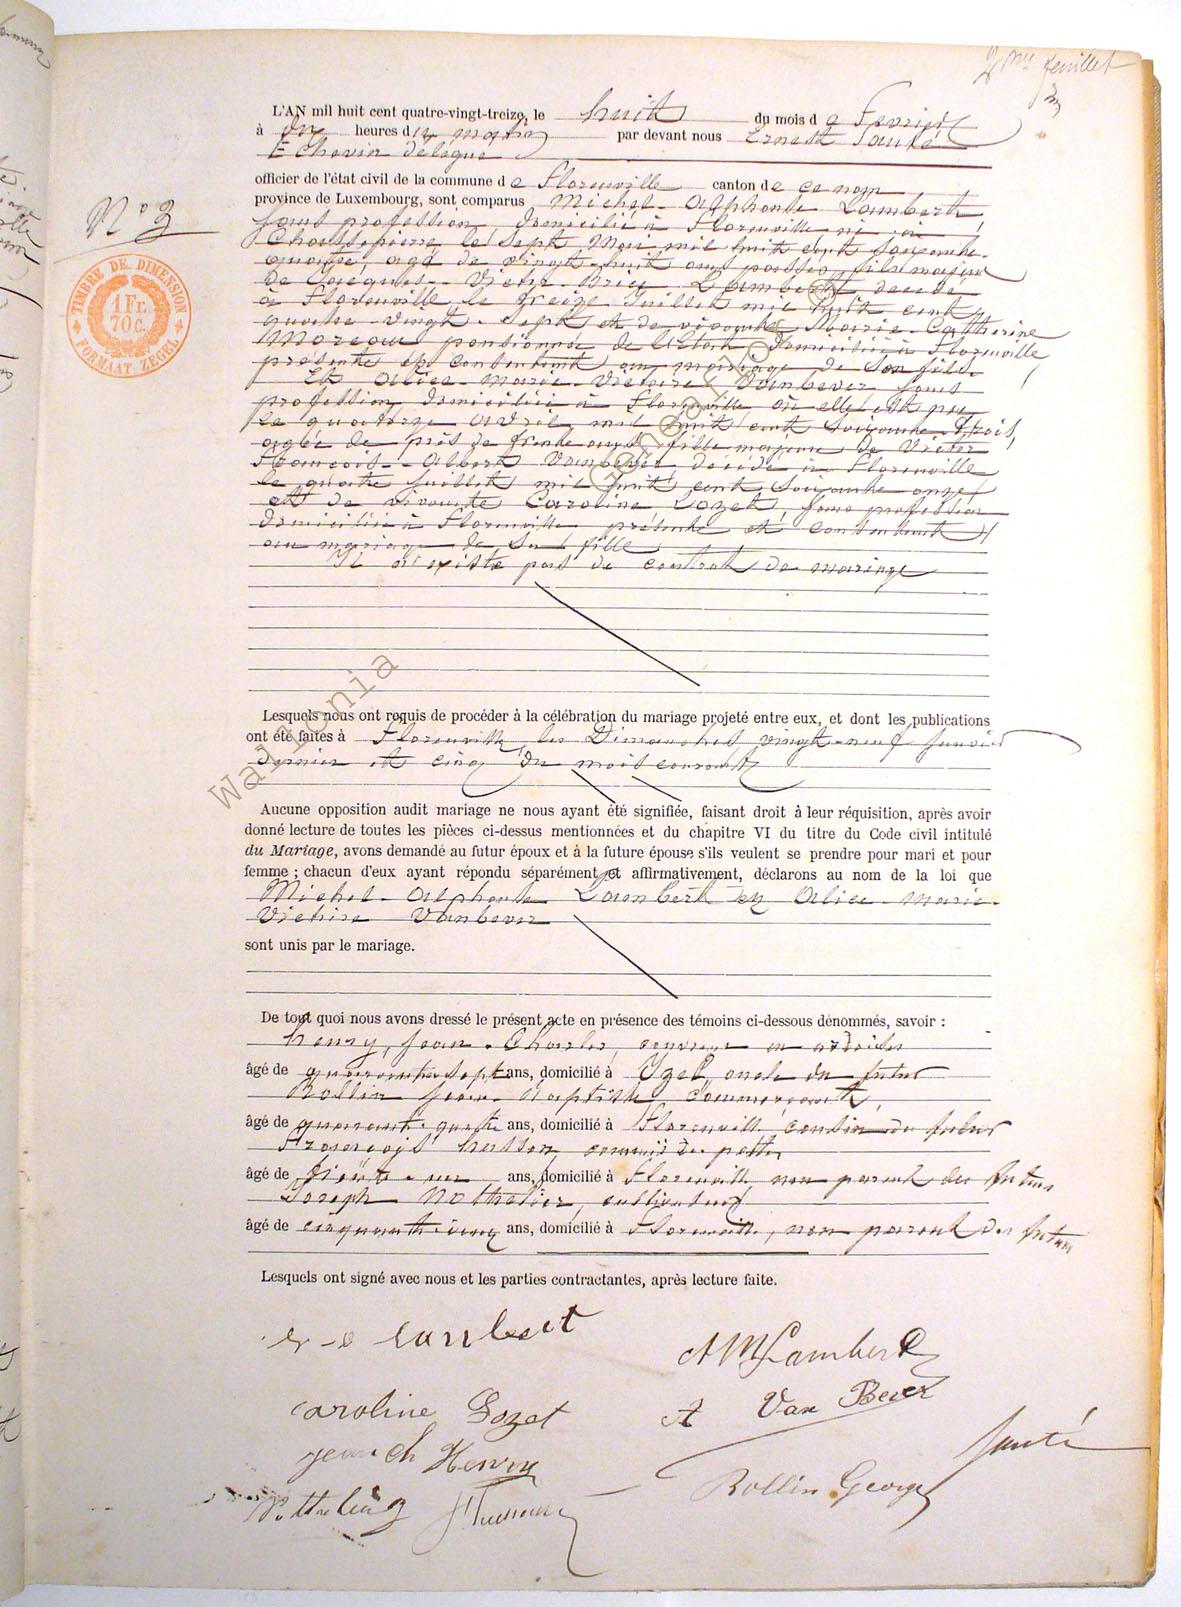 2me feuillet
L'AN mil huit cent quatre-vingt-treize, le huit du mois de Fevrier
à dix heures du matin par devant nous Ernest Santé
Echevin délégué
officier de l'état civil de la commune de Florenville canton de ce nom
province de Luxembourg, sont comparus Michel-Alphonse Lambert
N° 3
sans profession, domicilié à Florenville né à
Chassepierre le sept Mai mil huit cent soixante-
quatre, agé de vingt-huit ans passés, fils majeur
TIMBRE DE DIMENSION
1 Fr. 70 C.
FORMAAT ZEGEL
de Jacques-Victor-Brice Lambert décédé
à Florenville le treize Juillet mil huit cent
quatre-vingt-sept et de vivante Marie-Catherine
Moreau pensionnée de l'Etat domiciliée à Florenville
présente et consentant au mariage de son fils.
Et Alice-Marie-Victoire Vanbever sans
profession, domiciliée à Florenville où elle est née
le quatorze Avril mil huit cent soixante-trois,
agée de près de trente ans, fille majeure de Victor
François-Albert Vanbever décédé à Florenville
le quatre Juillet mil huit cent soixante onze
et de vivante Caroline Lozet, sans profession
domiciliée à Florenville présente et consentant
au mariage de sa fille
Il n'existe pas de contrat de mariage
Lesquels nous ont requis de procéder à la célébration du mariage projeté entre eux, et dont les publications
ont été faites à Florenville, les Dimanches vingt-neuf Janvier
dernier et cinq du mois courant
Aucune opposition audit mariage ne nous ayant été signifiée, faisant droit à leur réquisition, après avoir
donné lecture de toutes les pièces ci-dessus mentionnées et du chapitre VI du titre du Code civil intitulé
du Mariage, avons demandé au futur époux et à la future épouse s'ils veulent se prendre pour mari et pour
femme ; chacun d'eux ayant répondu séparément et affirmativement, déclarons au nom de la loi que
Michel-Alphonse Lambert et Alice-Marie-
Victoire Vanbever
sont unis par le mariage.
De tout quoi nous avons dressé le présent acte en présence des témoins ci-dessous dénommés, savoir :
henry, Jean-Charles, ouvrier en ardoises
âgé de quarante sept ans, domicilié à Izel, oncle du futur
Rollin Jean-Baptiste, commerçant,
âgé de quarante-quatre ans, domicilié à Florenville cousin du futur
François husson, commis des postes,
âgé de trente-un ans, domicilié à Florenville, non parent des futurs
Joseph Nothelier, cultivateur
âgé de cinquante-cinq ans, domicilié à Florenville, non parent des futurs
Lesquels ont signé avec nous et les parties contractantes, après lecture faite.
Lambert
AMLambert
Caroline Lozet
A Van Bever
jean ch Henry
Santé
Rollin George
Wallonia Genealogie